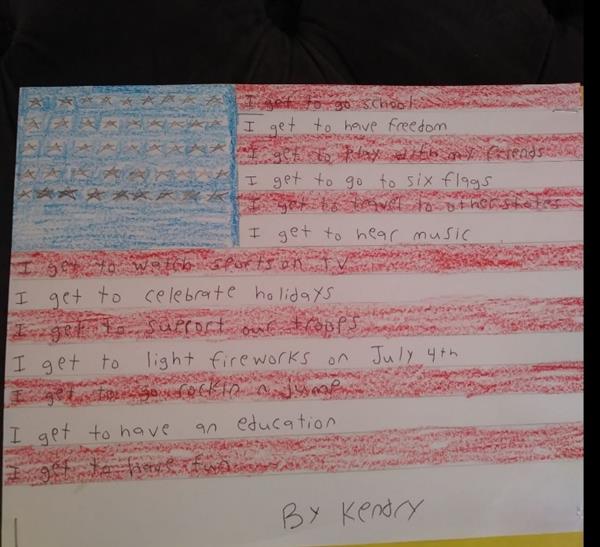 I get to go school
I get to have freedom
I get to play with my friends
I get to go to six flags
I get to travel to other states
I get to hear music
I get to watch sports on TV
I get to celebrate holidays
I get to support our troops
I get to light fireworks on July 4th
I get to go rockin n Jump
I get to have an education
I get to have fun
By Kendry